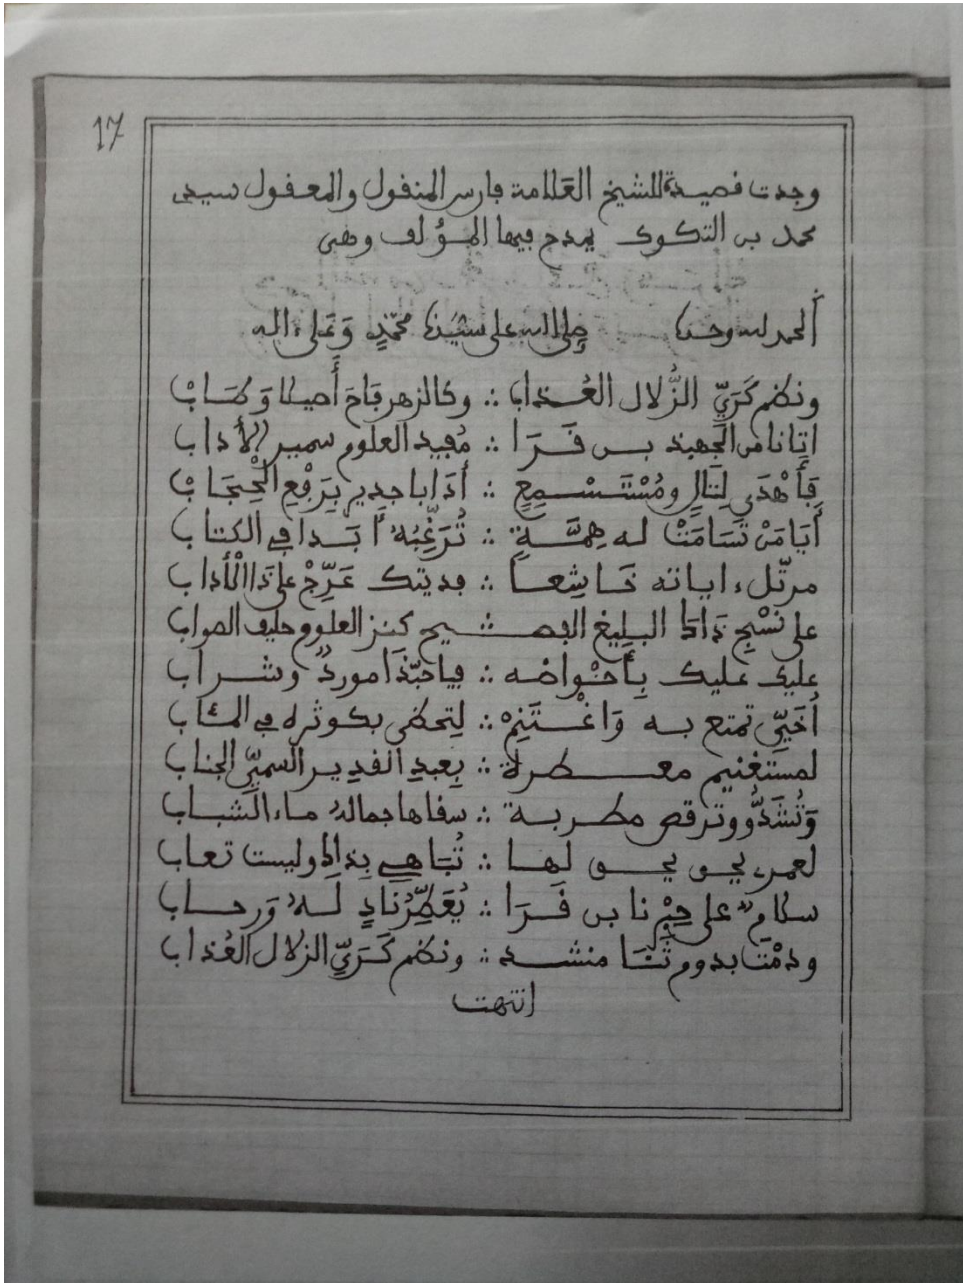 17
وجدت قصيدة للشيخ العلامة فارس المنقول والمعقول سيدي
محمد بن التكوك يمدح فيها المؤلف وهي
الحمد لله وحده صلى الله على سيدنا محمّدٍ وَعَلى ءاله
ونظم كَرَيِّ الزُّلال العُـذاب ∴ وكالزهر فَاحَ أَصيلا وَطَـابْ
اتانا من الجهبذ بـن قَـرَا ∴ مُفيد العلوم سمير الأداب
فَأَهْدَى لِتَالٍ ومُسْتَـسْـمِعٍ ∴ أدَابا جدير بِرَفْعِ الْحِجَـابْ
أَيَا مَنْ تَسَامَتْ له هِمَّـةٍ ∴ تُرَغِّبُهُ أَبَـدا في الكتاب
مرتّل ءاياته خَاشِعـا ∴ فديتك عَرِّجْ على ذَا الْأداب
على نَسْجِ ذَاكَ البليغ الفصـيح كنز العلوم حليف الصواب
عليك عليك بِأَحْوَاضه ∴ فيا حبّذَا موردٌ وشـراب
أُخَيِّي تمتع بـه وَاغْـتَنِمْ ∴ لِتحظى بكوثره في المـئاب
لمستغنيم معـطرة ∴ بِعبدِ القدِيـر السميِّ الجناب
وَتُشَدُّو وترقص مطربـة ∴ سقاها جمالهُ ماء الشباب
لعمرى يحـق يحـق لهـا ∴ تُبَاهِي بِذاك وليست تعاب
سلامٌ على حِبْرنا بن قَـرَا ∴ يُعَطِّرُ نَادٍ لَـهُ وَرحـاب
ودمْتَ بدوم ثَنَـا منشـد ∴ ونظم كَرَيِّ الزلال العُذاب
انتهت